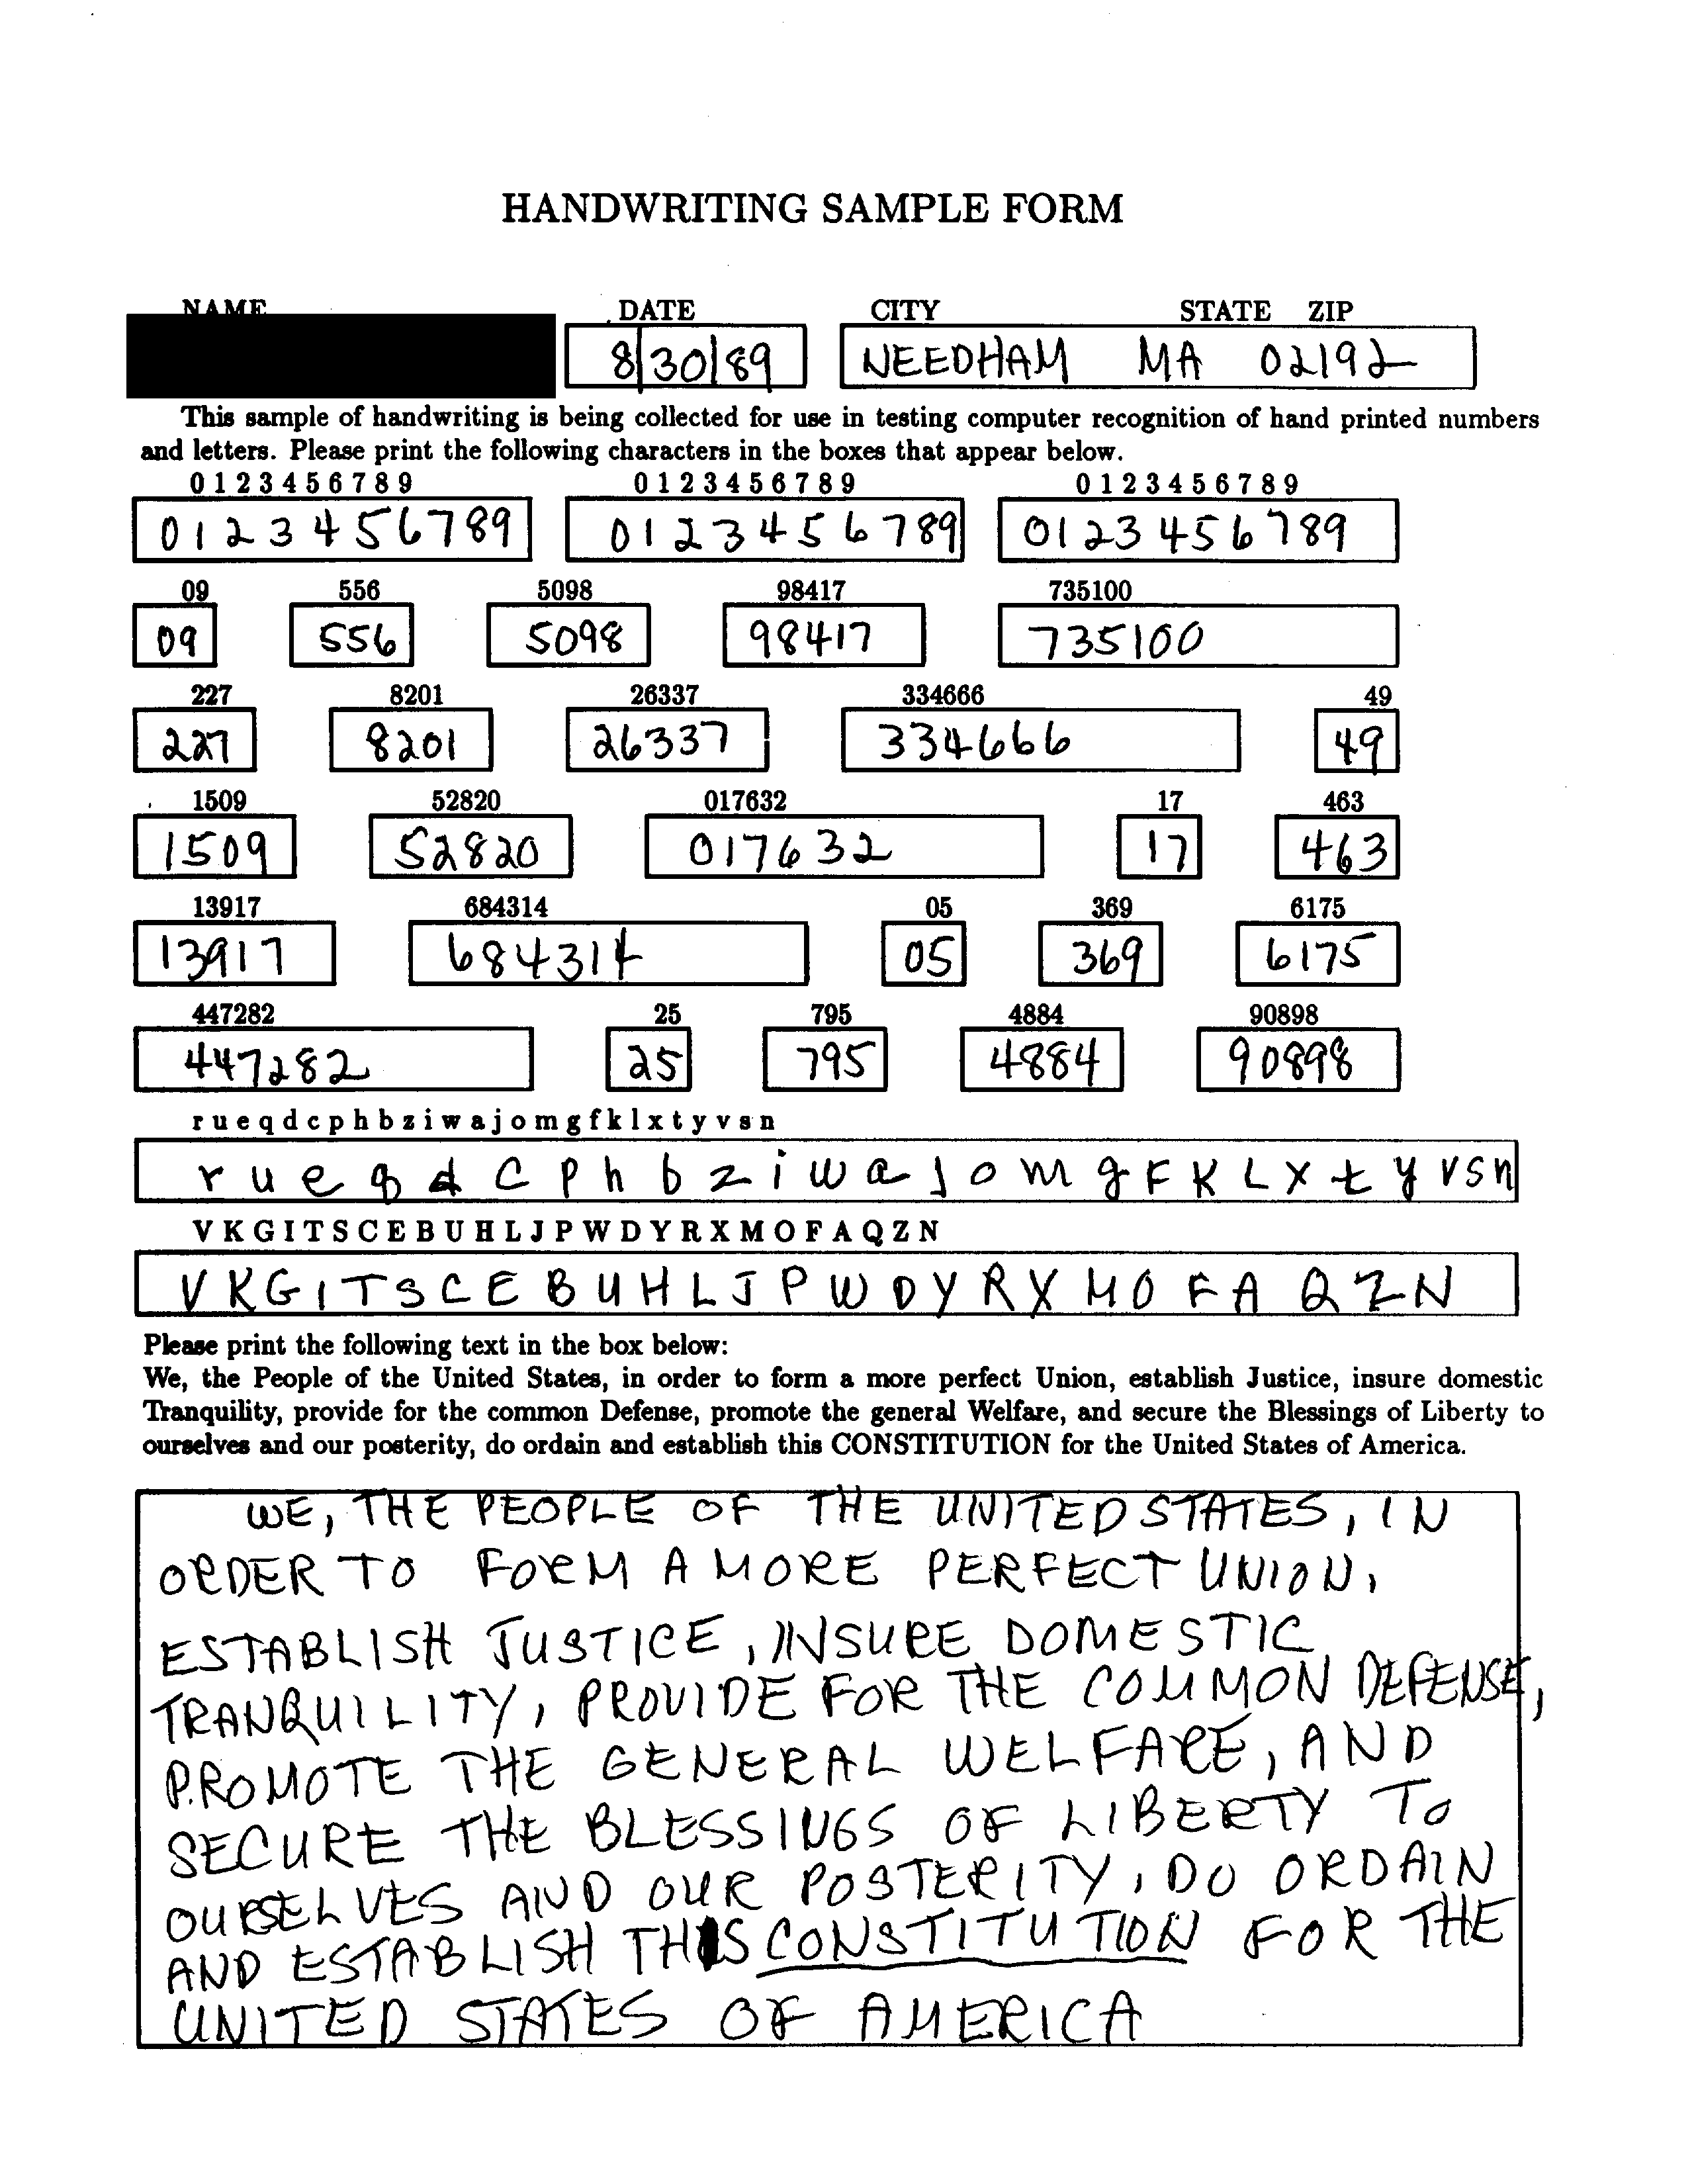 HANDWRITING SAMPLE FORM
NAME DATE CITY STATE ZIP
8/30/89 NEEDHAM MA 02192
This sample of handwriting is being collected for use in testing computer recognition of hand printed numbers
and letters. Please print the following characters in the boxes that appear below.
0 1 2 3 4 5 6 7 8 9 0 1 2 3 4 5 6 7 8 9 0 1 2 3 4 5 6 7 8 9
0 1 2 3 4 5 6 7 8 9 0 1 2 3 4 5 6 7 8 9 0 1 2 3 4 5 6 7 8 9
09 556 5098 98417 735100
09 556 5098 98417 735100
227 8201 26337 334666 49
227 8201 26337 334666 49
1509 52820 017632 17 463
1509 52820 017632 17 463
13917 684314 05 369 6175
13917 684314 05 369 6175
447282 25 795 4884 90898
447282 25 795 4884 90898
r u e q d c p h b z i w a j o m g f k l x t y v s n
r u e q d c p h b z i w a j o m g F K L x t y v s n
V K G I T S C E B U H L J P W D Y R X M O F A Q Z N
V K G I T S C E B U H L J P W D Y R X M O F A Q Z N
Please print the following text in the box below:
We, the People of the United States, in order to form a more perfect Union, establish Justice, insure domestic
Tranquility, provide for the common Defense, promote the general Welfare, and secure the Blessings of Liberty to
ourselves and our posterity, do ordain and establish this CONSTITUTION for the United States of America.
WE, THE PEOPLE OF THE UNITED STATES, IN
ORDER TO FORM A MORE PERFECT UNION,
ESTABLISH JUSTICE, INSURE DOMESTIC
TRANQUILITY, PROVIDE FOR THE COMMON DEFENSE,
PROMOTE THE GENERAL WELFARE, AND
SECURE THE BLESSINGS OF LIBERTY TO
OURSELVES AND OUR POSTERITY, DO ORDAIN
AND ESTABLISH THIS CONSTITUTION FOR THE
UNITED STATES OF AMERICA